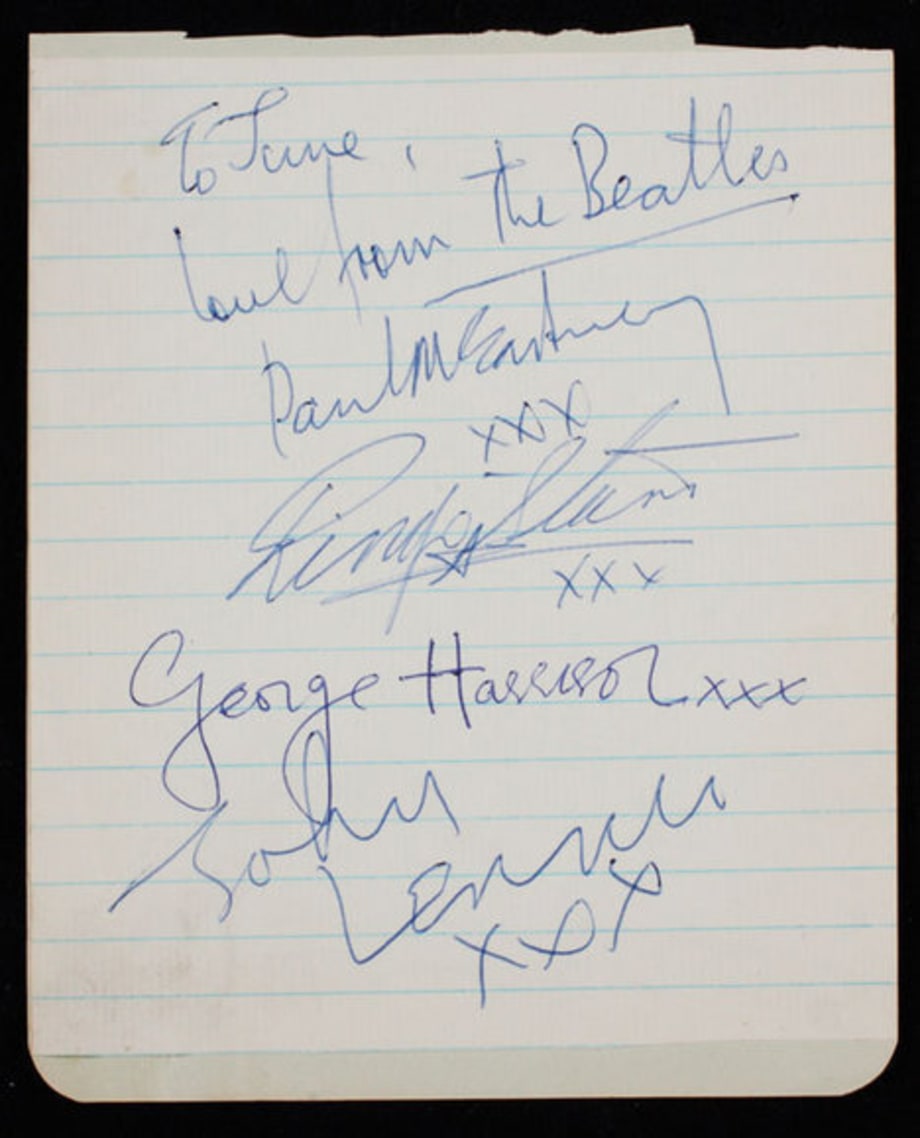 To June,
love from The Beatles
Paul McCartney
xxx
Ringo Starr
xxx
George Harrison xxx
John
Lennon
xxx